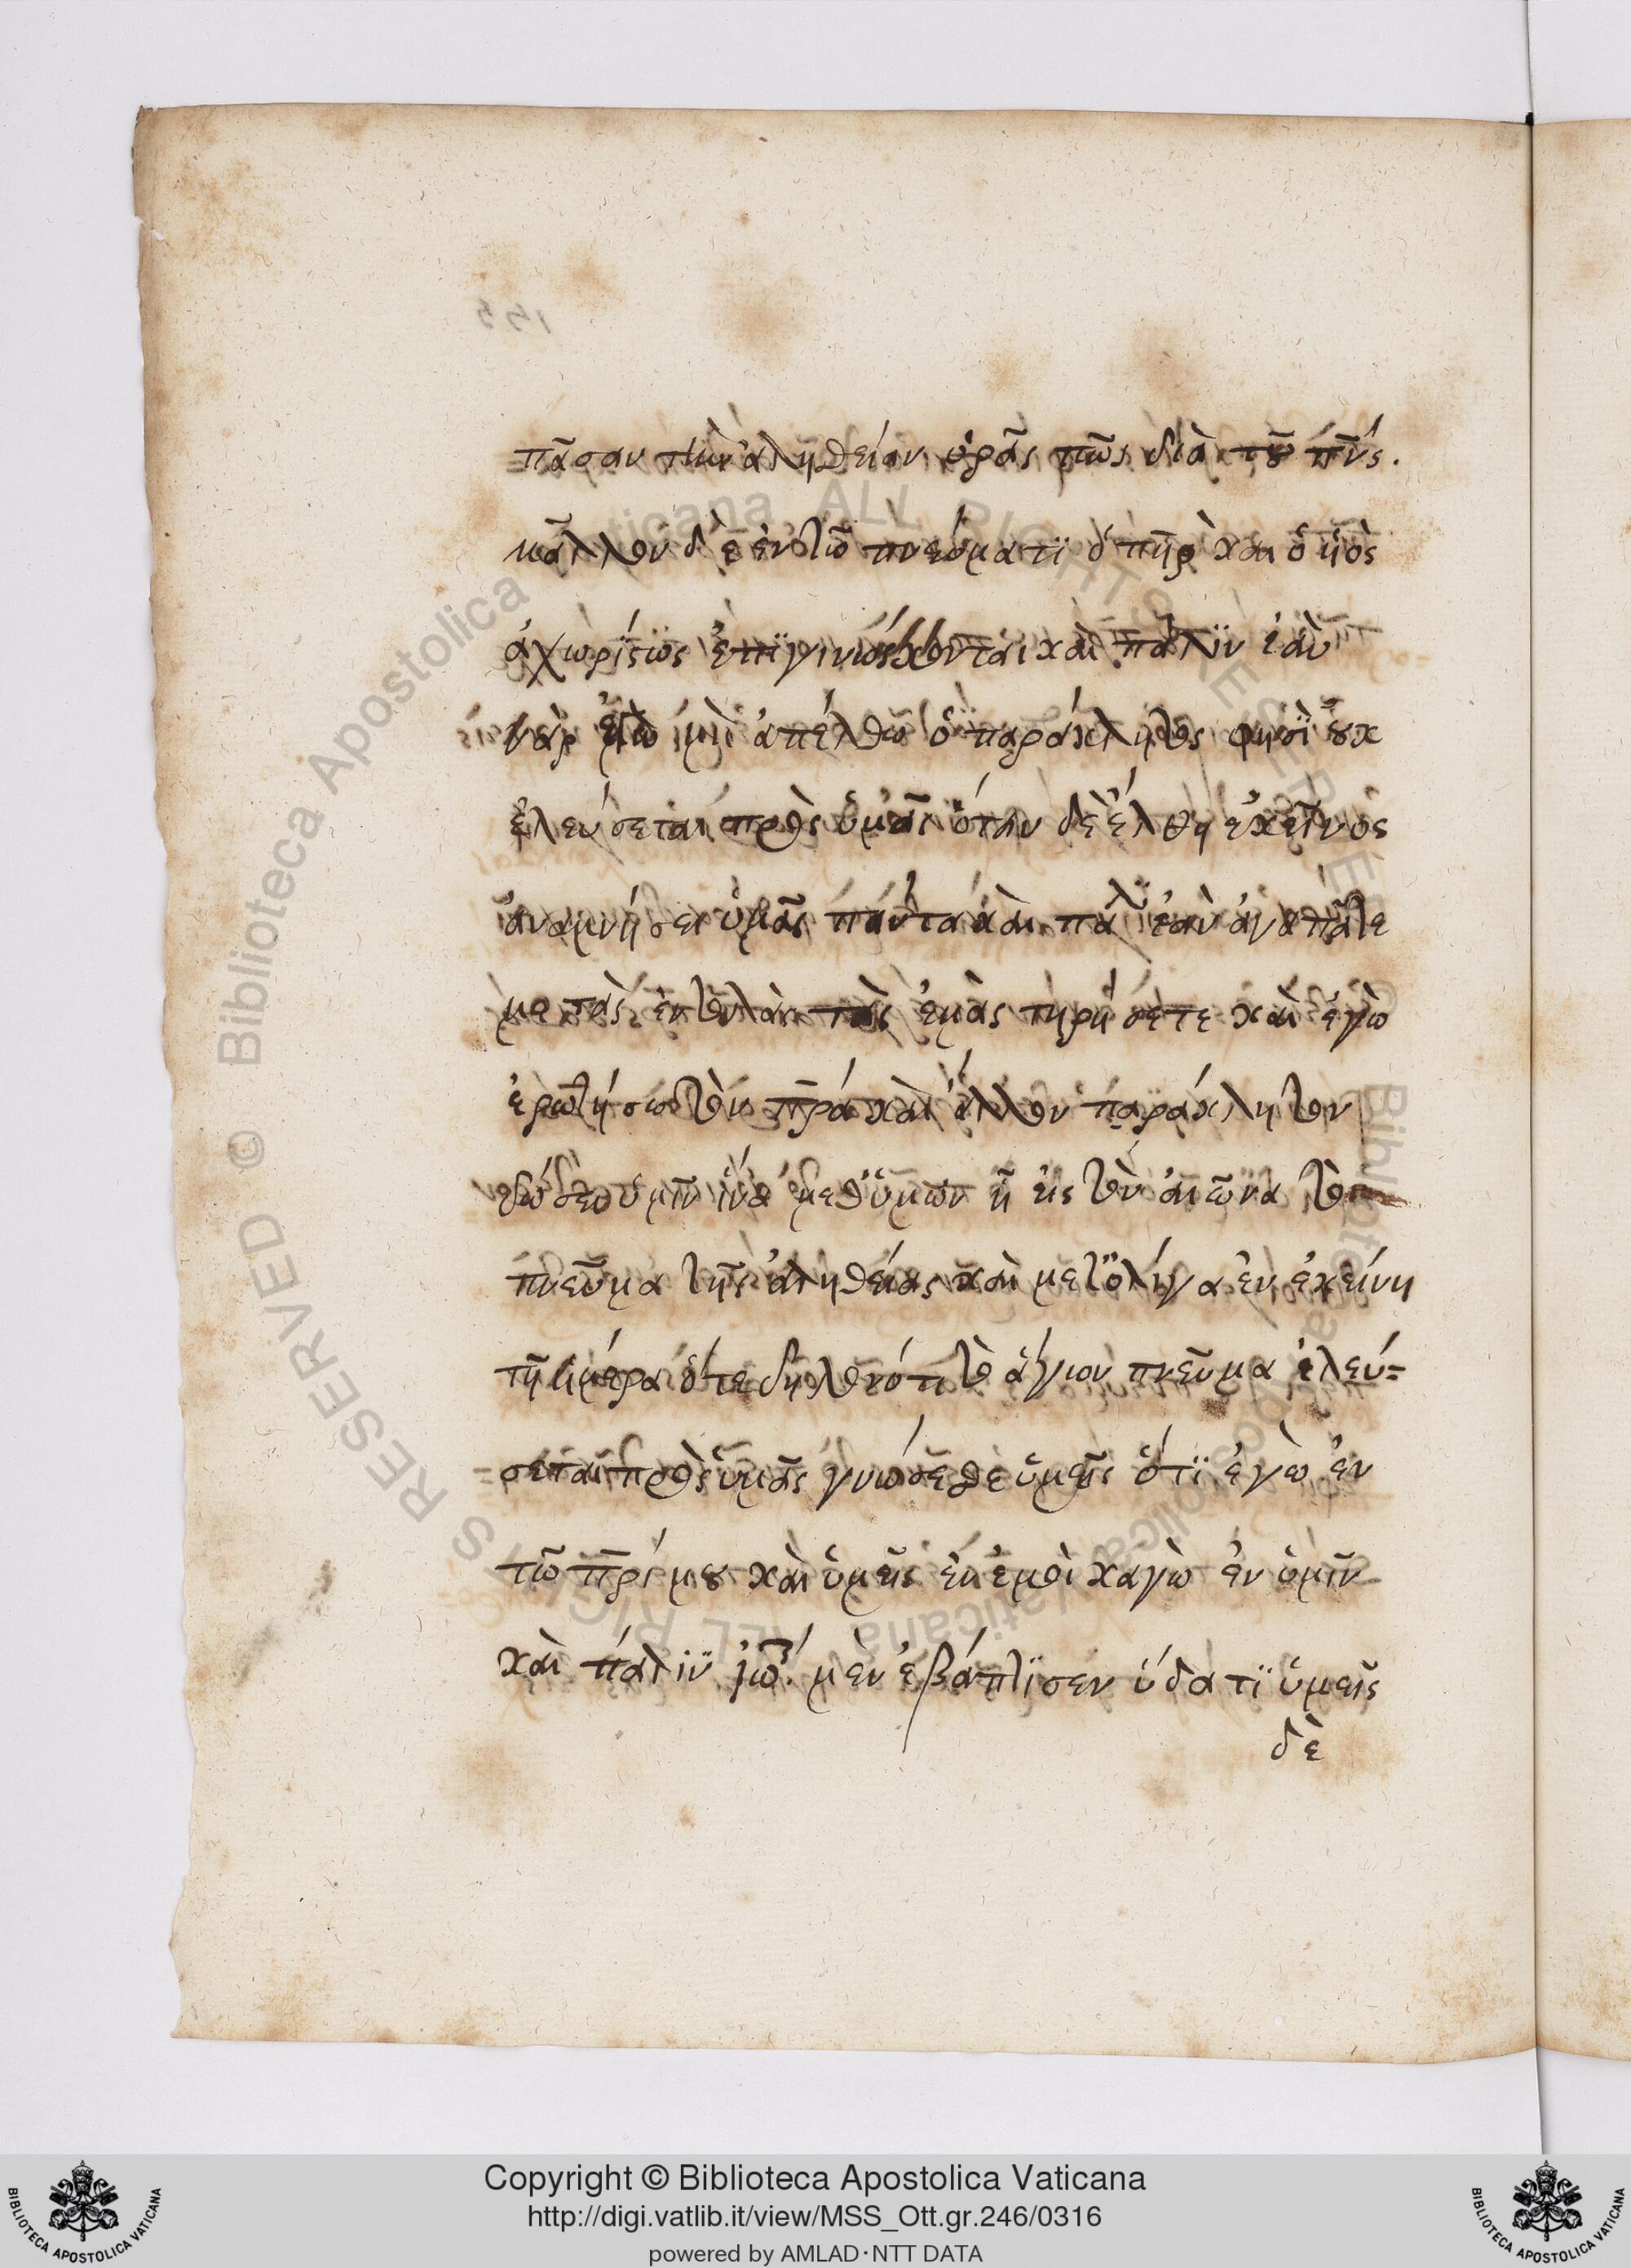 πᾶσαν τὴν ἀλήθειαν ὁρᾶς πῶς διὰ τοῦ πν̅ς.
μᾶλλον δὲ ἐν τῶ πνεύματϊ ὁ πη̅ρ καὶ ὁ υἱὸς
ἀχωρίστως ἐπϊγινώσκονται καὶ πάλϊν ἐὰν
γὰρ ἐγὼ μὴ ἀπέλθω ὁ παράκλητος φησῒ οὐκ
ἐλεύσεται πρὸς ὑμᾶς ὅταν δὲ ἔλθη ἐκεῖνος
ἀναμνήσει ὑμᾶς πάντα καὶ πάλϊ ἐὰν ἀγαπᾶτε
με τὰς ἐντολὰς τὰς ἐμὰς τηρήσετε καὶ ἐγὼ
ἐρωτήσω τὸν πρ̅α καὶ ἄλλον παράκλητον
δώσει ὑμῖν ἵνα μεθ' ὑμῶν ἦ εἰς τὸν αἰῶνα τὸ
πνεῦμα τῆς ἀληθείας καὶ μετ' ὀλίγα ἐν ἐκείνη
τῆ ἡμέρα ὅτε δηλονότι τὸ ἅγιον πνεῦμα ἐλεύ=
σεται πρὸς ὑμᾶς γνώσεσθε ὑμεῖς ὅτϊ ἐγὼ ἐν
τῶ πρ̅ί μου καὶ ὑμεῖς ἐν ἐμοὶ καγὼ ἐν ὑμῖν
καὶ πάλιν ἰω̅. μὲν ἐβάπτϊσεν ὕδατϊ ὑμεῖς
δὲ
Copyright © Biblioteca Apostolica Vaticana
http://digi.vatlib.it/view/MSS_Ott.gr.246/0316
powered by AMLAD·NTT DATA
BIBLIOTECA APOSTOLICA VATICANA
BIBLIOTECA APOSTOLICA VATICANA
© Biblioteca Apostolica Vaticana ALL RIGHTS RESERVED
© Biblioteca Apostolica Vaticana ALL RIGHTS RESERVED